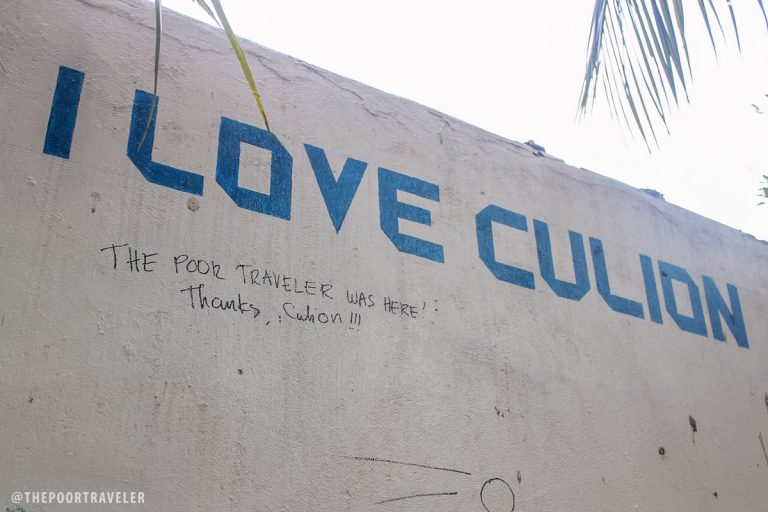 I LOVE CULION
THE POOR TRAVELER WAS HERE!
Thanks, Culion!!!
@THEPOORTRAVELER